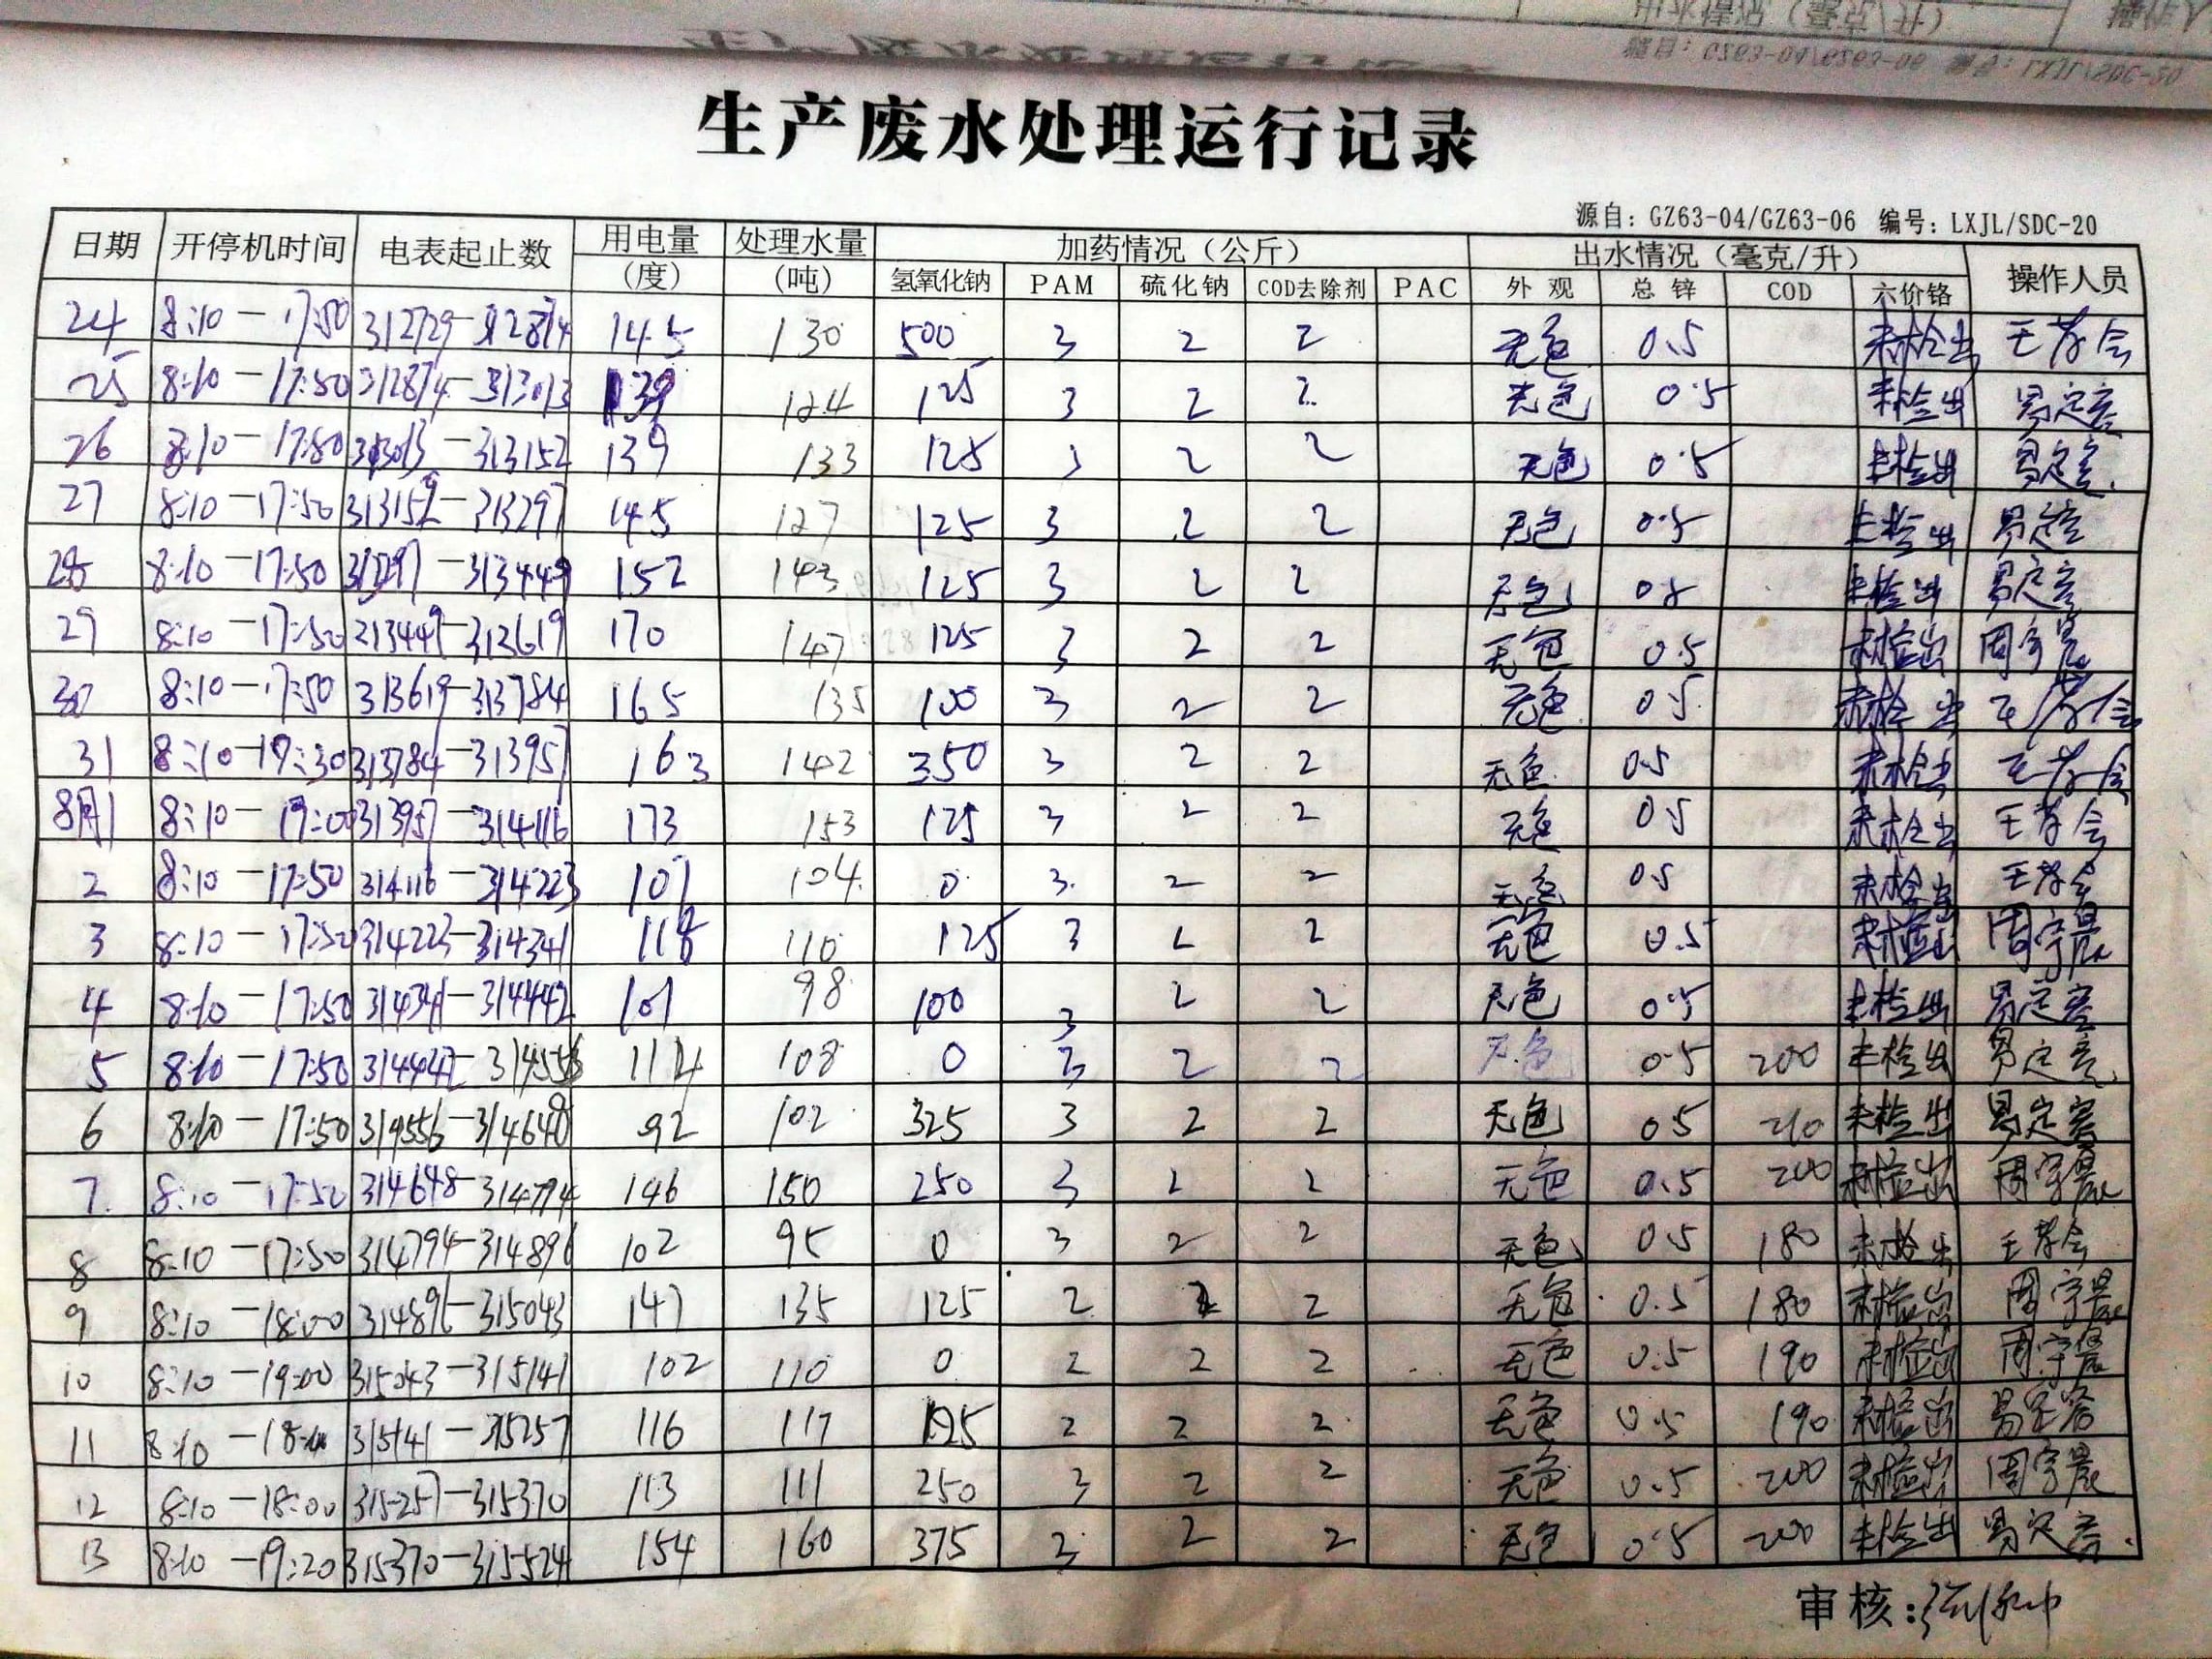 生产废水处理运行记录
源自：GZ63-04/GZ63-06 编号：LXJL/SDC-20
日期 开停机时间 电表起止数 用电量（度） 处理水量（吨） 加药情况（公斤） 出水情况（毫克/升） 操作人员
氢氧化钠 PAM 硫化钠 COD去除剂 PAC 外观 总锌 COD 六价铬
24 8:10-17:50 312729-312874 145 130 500 3 2 2 无色 0.5 未检出
25 8:10-17:50 312874-313013 139 124 125 3 2 2 无色 0.5 未检出
26 8:10-17:50 313013-313152 139 133 125 3 2 2 无色 0.5 未检出
27 8:10-17:50 313152-313297 145 127 125 3 2 2 无色 0.5 未检出
28 8:10-17:50 313297-313449 152 143 125 3 2 2 无色 0.5 未检出
29 8:10-17:50 313449-313619 170 147 125 3 2 2 无色 0.5 未检出 周宇晨
30 8:10-17:50 313619-313784 165 135 100 3 2 2 无色 0.5 未检出
31 8:10-19:30 313784-313957 163 142 350 3 2 2 无色 0.5 未检出
8月1 8:10-19:00 313957-314116 173 153 125 3 2 2 无色 0.5 未检出
2 8:10-17:50 314116-314223 107 104 0 3 2 2 无色 0.5 未检出
3 8:10-17:50 314223-314341 118 110 125 3 2 2 无色 0.5 未检出 周宇晨
4 8:10-17:50 314341-314442 101 98 100 3 2 2 无色 0.5 未检出
5 8:10-17:50 314442-314556 114 108 0 3 2 2 无色 0.5 200 未检出
6 8:10-17:50 314556-314648 92 102 325 3 2 2 无色 0.5 210 未检出
7 8:10-17:50 314648-314794 146 150 250 3 2 2 无色 0.5 200 未检出 周宇晨
8 8:10-17:50 314794-314896 102 95 0 3 2 2 无色 0.5 180 未检出
9 8:10-18:00 314896-315043 147 135 125 2 2 2 无色 0.5 180 未检出 周宇晨
10 8:10-19:00 315043-315141 102 110 0 2 2 2 无色 0.5 190 未检出 周宇晨
11 8:10 315141-315257 116 117 125 2 2 2 无色 0.5 190 未检出
12 8:10-18:00 315257-315370 113 111 250 3 2 2 无色 0.5 200 未检出 周宇晨
13 8:10-19:20 315370-315524 154 160 375 3 2 2 无色 0.5 200 未检出
审核：